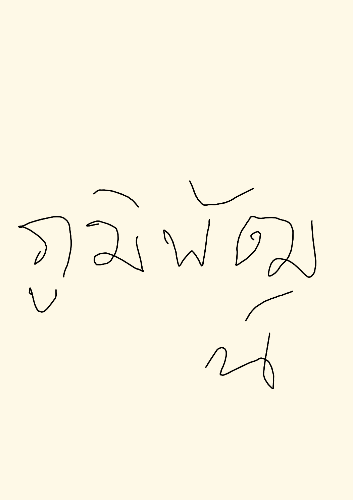 ภูมิพัฒ
น์